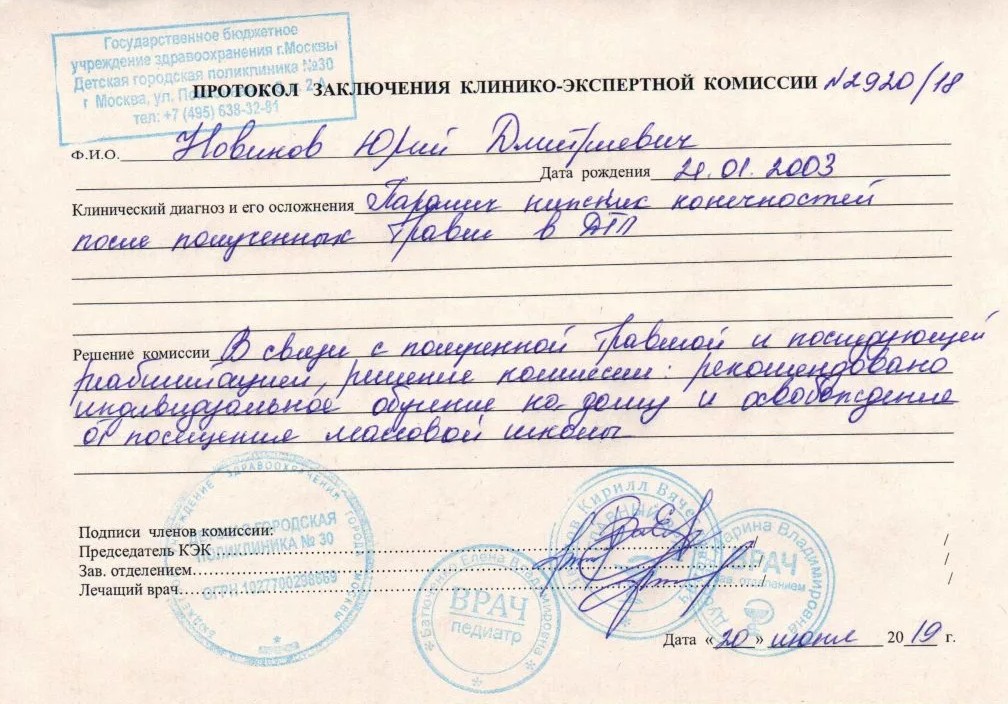 Государственное бюджетное
учреждение здравоохранения г.Москвы
Детская городская поликлиника №30
г Москва, ул. По 2-А
тел: +7 (495) 638-32-81
ПРОТОКОЛ ЗАКЛЮЧЕНИЯ КЛИНИКО-ЭКСПЕРТНОЙ КОМИССИИ №2920/18
Ф.И.О. Новиков Юрий Дмитриевич
Дата рождения 21.01.2003
Клинический диагноз и его осложнения Паралич нижних конечностей
после полученных травм в ДТП
Решение комиссии В связи с полученной травмой и последующей
реабилитацией, решение комиссии: рекомендовано
индивидуальное обучение на дому и освобождение
от посещения массовой школы
Подписи членов комиссии:
Председатель КЭК /
Зав. отделением /
Лечащий врач /
ЗДРАВООХРАНЕНИЯ ГОРОДА МОСКВЫ
ГОРОДСКАЯ
ПОЛИКЛИНИКА № 30
ОГРН 1027700298669
Елена Владимировна
ВРАЧ
педиатр
Кирилл
Марина Владимировна
ВРАЧ
зав. отделением
Дата «20» июня 2019 г.